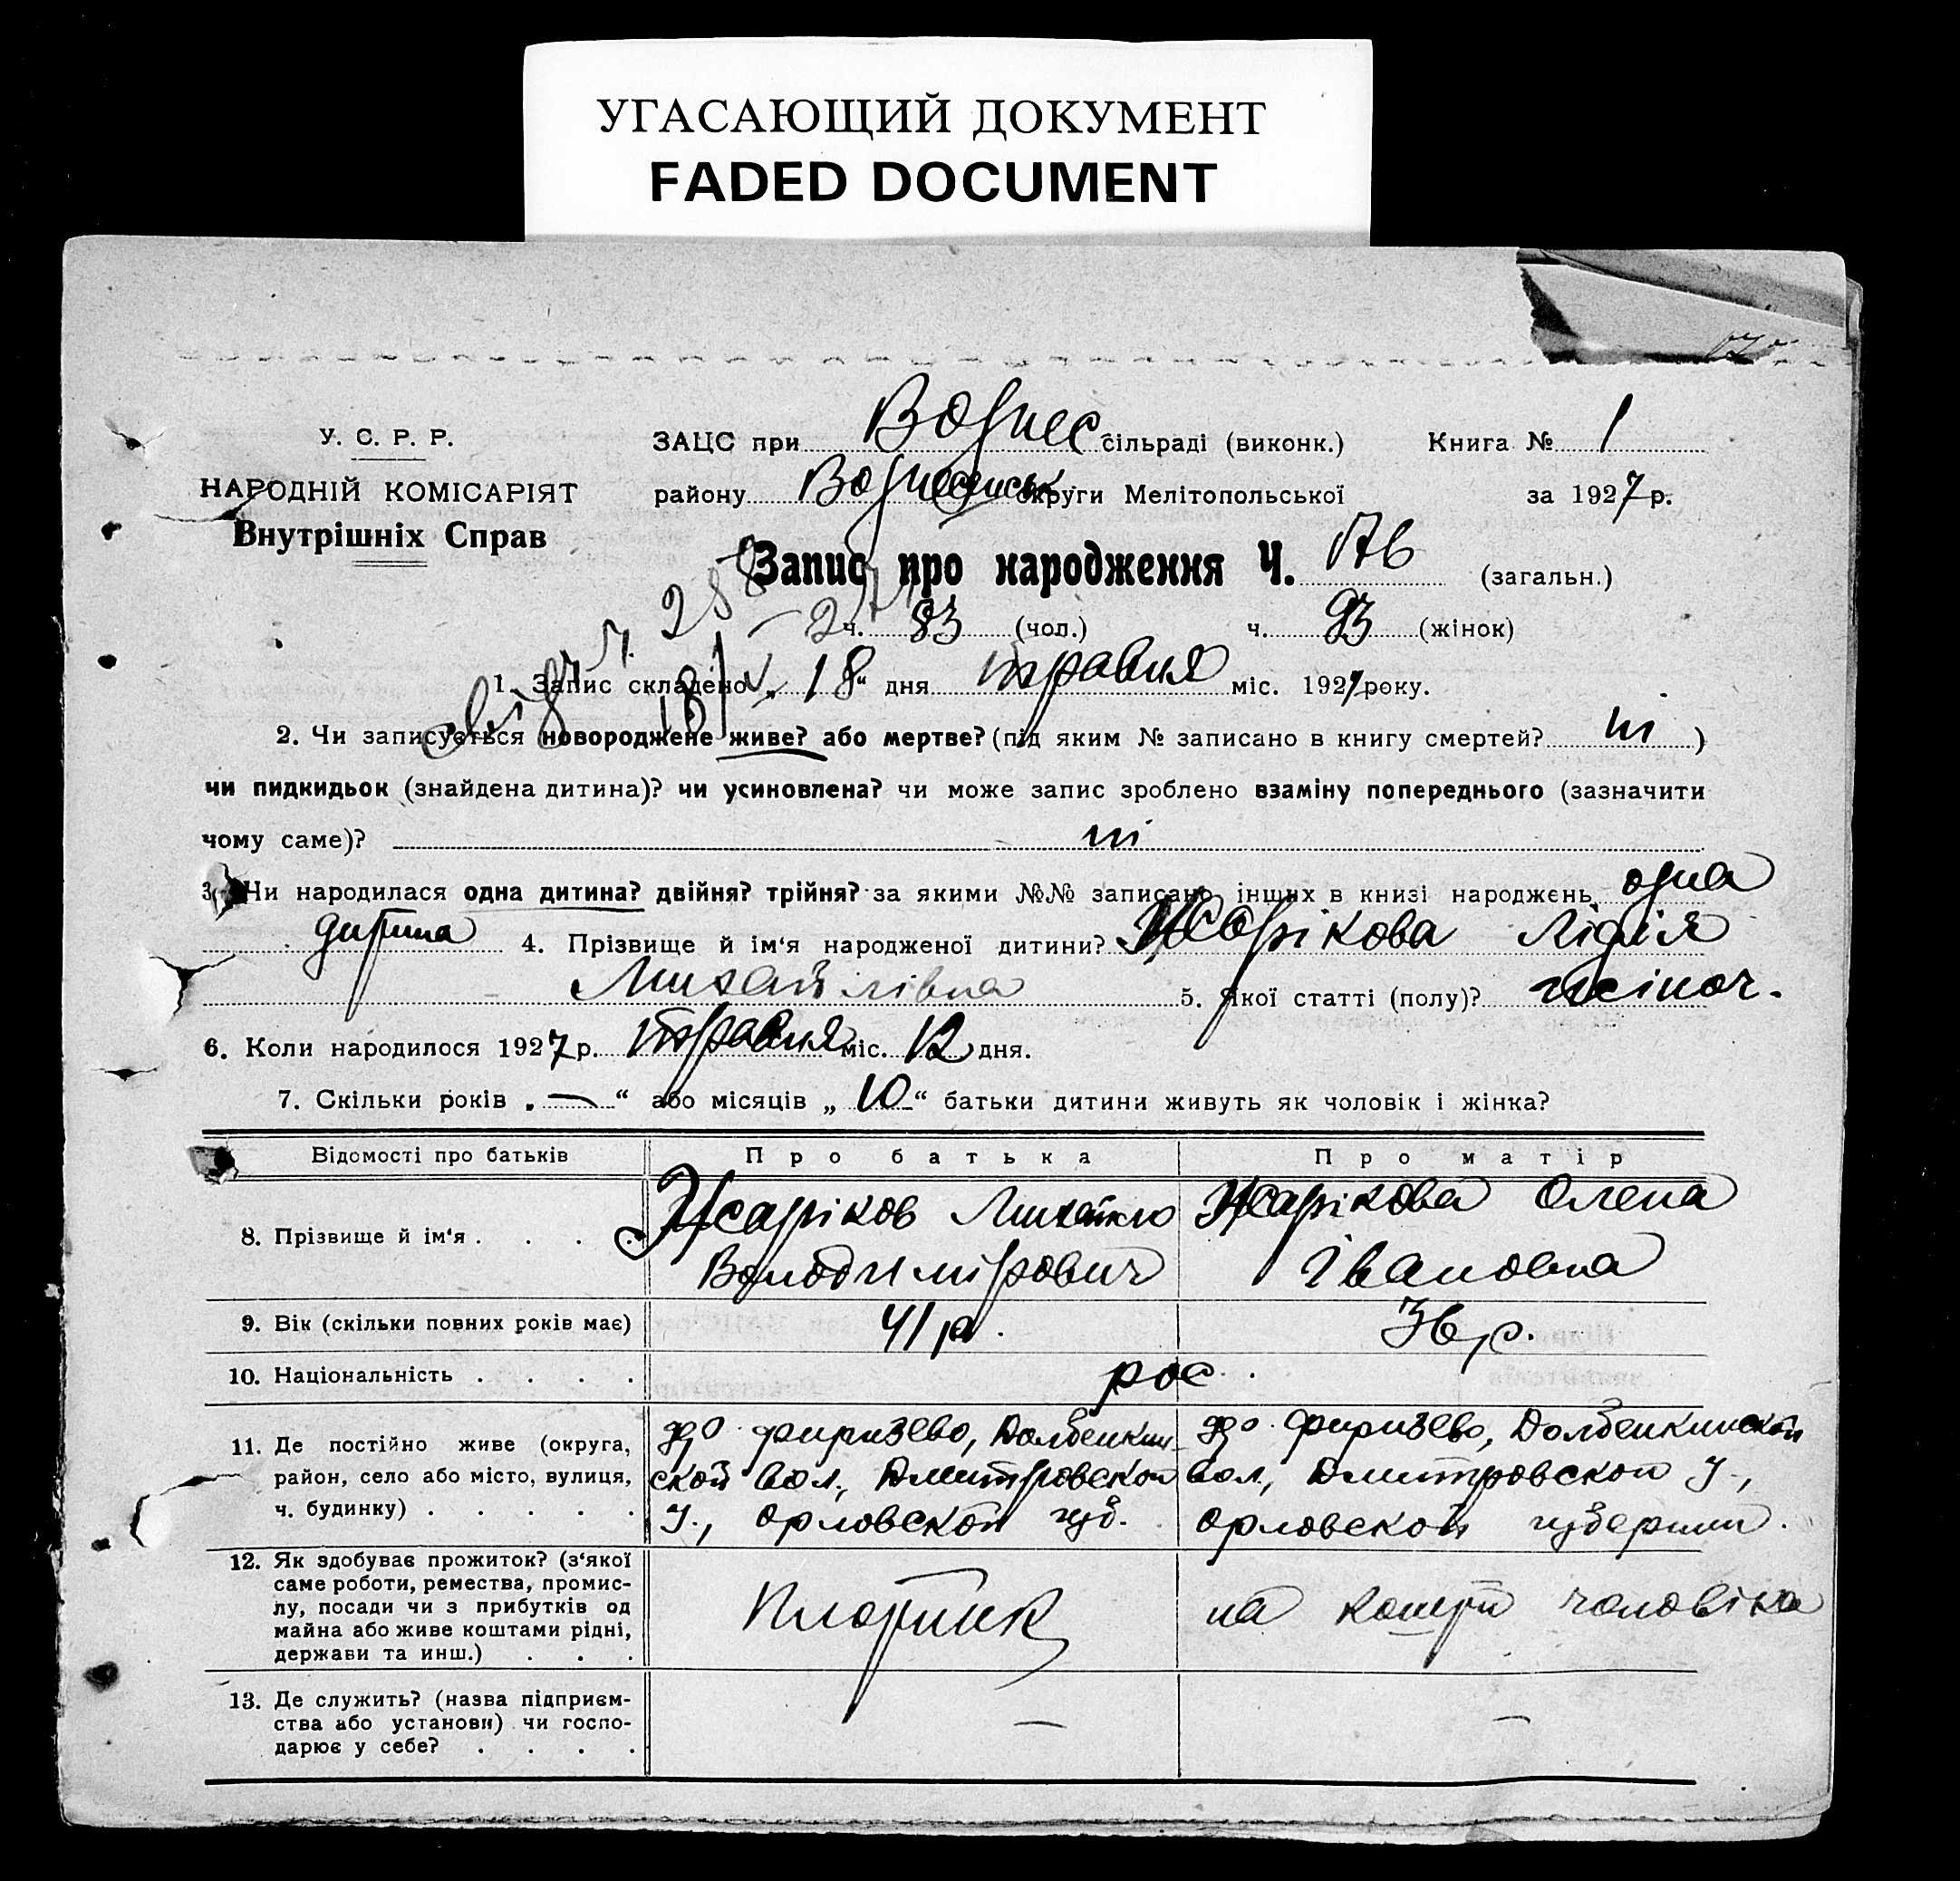 УГАСАЮЩИЙ ДОКУМЕНТ
FADED DOCUMENT
У. С. Р. Р.
НАРОДНІЙ КОМІСАРІЯТ
Внутрішніх Справ
ЗАЦС при Вознес сільраді (виконк.) Книга № 1
району Вознесенськ округи Мелітопольської за 1927 р.
Запис про народження Ч. 176 (загальн.)
ч. 83 (чол.) ч. 93 (жінок)
1. Запис складено „ 18 “ дня травня міс. 1927 року.
2. Чи записується новороджене живе? або мертве? (під яким № записано в книгу смертей? ні )
чи пидкидьок (знайдена дитина)? чи усиновлена? чи може запис зроблено взаміну попереднього (зазначити
чому саме)? ні
3. Чи народилася одна дитина? двійня? трійня? за якими №№ записано інших в книзі народжень одна
дитина 4. Прізвище й ім‘я народженої дитини? Жарікова Лідія
Михайлівна 5. Якої статті (полу)? жіноч.
6. Коли народилося 1927 р. травня міс. 12 дня.
7. Скільки років „ — “ або місяців „ 10 “ батьки дитини живуть як чоловік і жінка?
Відомості про батьків Про батька Про матір
8. Прізвище й ім‘я . . . . Жаріков Михайло Жарікова Олена
Володимірович Івановна
9. Вік (скільки повних років має) 41 р. 36 р.
10. Національність . . . . рос.
11. Де постійно живе (округа, район, село або місто, вулиця, ч. будинку) . . . . .
Фиризево, Долбенкин-
ской вол., Дмитровской
у., Орловской губ.
Фиризево, Долбенкинской
вол., Дмитровской у.,
Орловской губернии.
12. Як здобуває прожиток? (з‘якої
саме роботи, ремества, промис-
лу, посади чи з прибутків од
майна або живе коштами рідні,
держави та инш.) . . .
Плотник на кошти чоловіка
13. Де служить? (назва підприєм-
ства або установи) чи госпо-
дарює у себе? . . . .
— —